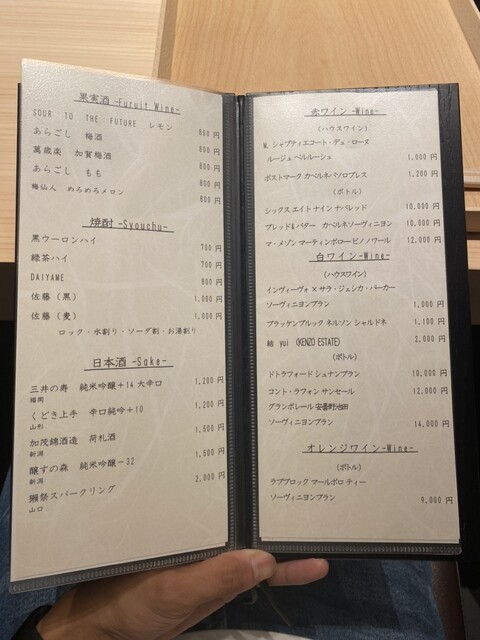 果実酒 -Furuit Wine-
SOUR TO THE FUTURE レモン 800 円
あらごし 梅酒 800 円
萬歳楽 加賀梅酒 800 円
あらごし もも 800 円
梅仙人 めろめろメロン 800 円
焼酎 -Syouchu-
黒ウーロンハイ 700 円
緑茶ハイ 700 円
DAIYAME 800 円
佐藤 (黒) 1,000 円
佐藤 (麦) 1,000 円
ロック・水割り・ソーダ割・お湯割り
日本酒 -Sake-
三井の寿 純米吟醸+14 大辛口 1,200 円
福岡
くどき上手 辛口純吟+10 1,200 円
山形
加茂錦酒造 荷札酒 1,500 円
新潟
醸す森 純米吟醸-32 1,500 円
新潟
獺祭スパークリング 2,000 円
山口
赤ワイン -Wine-
(ハウスワイン)
M. シャプティエコート・デュ・ローヌ
ルージュ ベルルーシュ 1,000 円
ポストマーク カベルネパソロブレス 1,200 円
(ボトル)
シックス エイト ナイン ナパレッド 10.000 円
ブレッド&バター カベルネソーヴィニヨン 10.000 円
マ・メゾン マーティンボロー ピノノワール 12,000 円
白ワイン -Wine-
(ハウスワイン)
インヴィーヴォ × サラ・ジェシカ・パーカー
ソーヴィニヨンブラン 1,000 円
ブラッケンブルック ネルソン シャルドネ 1,100 円
結 yui (KENZO ESTATE) 2,000 円
(ボトル)
ドトラフォード シュナンブラン 10,000 円
コント・ラフォン サンセール 12,000 円
グランポレール 安曇野池田
ソーヴィニヨンブラン 14,000 円
オレンジワイン -Wine-
(ボトル)
ラブブロック マールボロ ティー
ソーヴィニヨンブラン 9,000 円